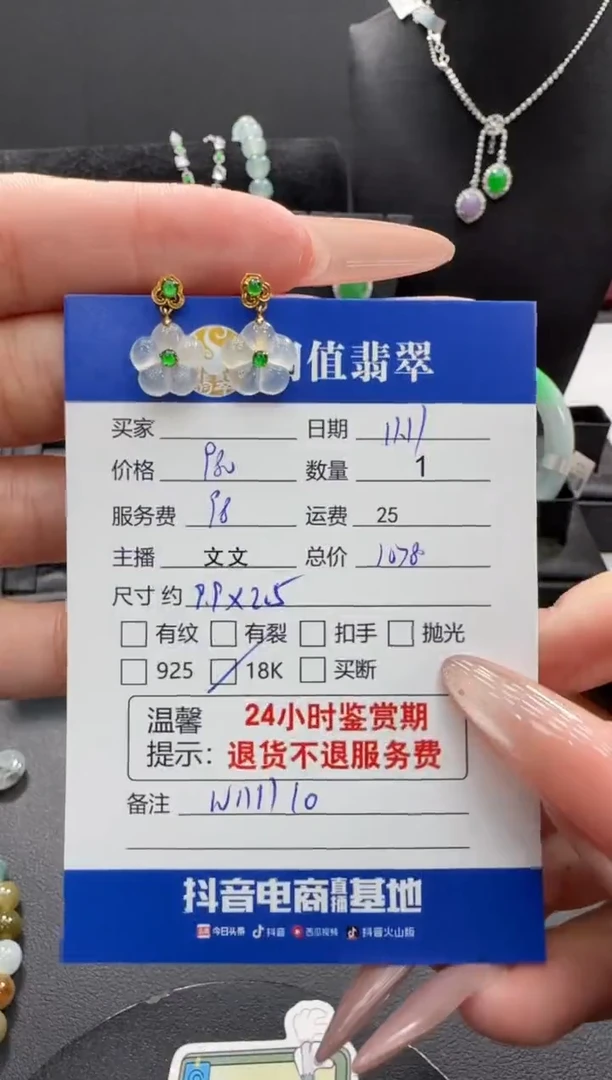 值翡翠
买家 日期 11.11
价格 980 数量 1
服务费 98 运费 25
主播 文文 总价 1078
尺寸 约 9.9X2.5
有纹 有裂 扣手 抛光
925 18K 买断
温馨 24小时鉴赏期
提示: 退货不退服务费
备注
抖音电商直播基地
今日头条 抖音 西瓜视频 抖音火山版